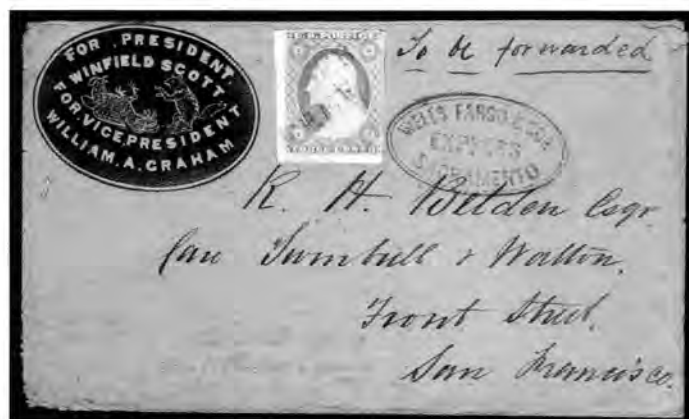 FOR PRESIDENT.
WINFIELD SCOTT
FOR. VICE. PRESIDENT
WILLIAM. A. GRAHAM
To be forwarded
WELLS FARGO & CO'S
EXPRESS
SACRAMENTO
THREE CENTS
R. H. Belden Esqr.
Care Turnbull & Walton,
Front Street,
San Francisco.